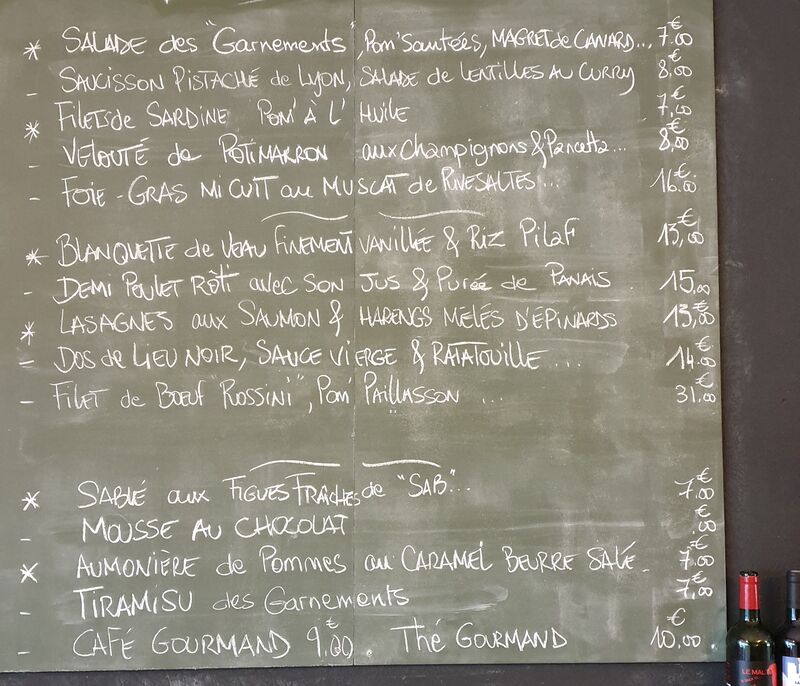 * SALADE des "Garnements", Pom' Sautées, MAGRET de CANARD... 7.00€
- SAUCISSON PISTACHÉ de LYON, SALADE de LENTILLES AU CURRY 8.00€
* Filets de SARDINE POM' À L'HUILE 7,00€
- VELOUTÉ de POTIMARRON aux Champignons & Pancetta... 8,00€
- FOIE-GRAS MI CUIT au MUSCAT de RIVESALTES... 16.00€
* BLANQUETTE de VEAU FINEMENT VANILLÉE & RIZ PILAF 13,00€
- DEMI POULET RÔTI avec SON JUS & PURÉE de PANAIS. 15,00
* LASAGNES aux SAUMON & HARENGS MELÉS D'ÉPINARDS 13,00€
- DOS de LIEU NOIR, SAUCE VIERGE & RATATOUILLE... 14.00€
- FILET de BŒUF "ROSSINI", POM' PAILLASSON... 31.00€
* SABLÉ aux FIGUES FRAÎCHES de "SAB"... 7.00€
- MOUSSE AU CHOCOLAT .00€
* AUMONIÈRE de POMMES au CARAMEL BEURRE SALÉ- 7.00€
- TIRAMISU des Garnements 7,00€
- CAFÉ GOURMAND 9.00€. THÉ GOURMAND 10.00€
LE MAL